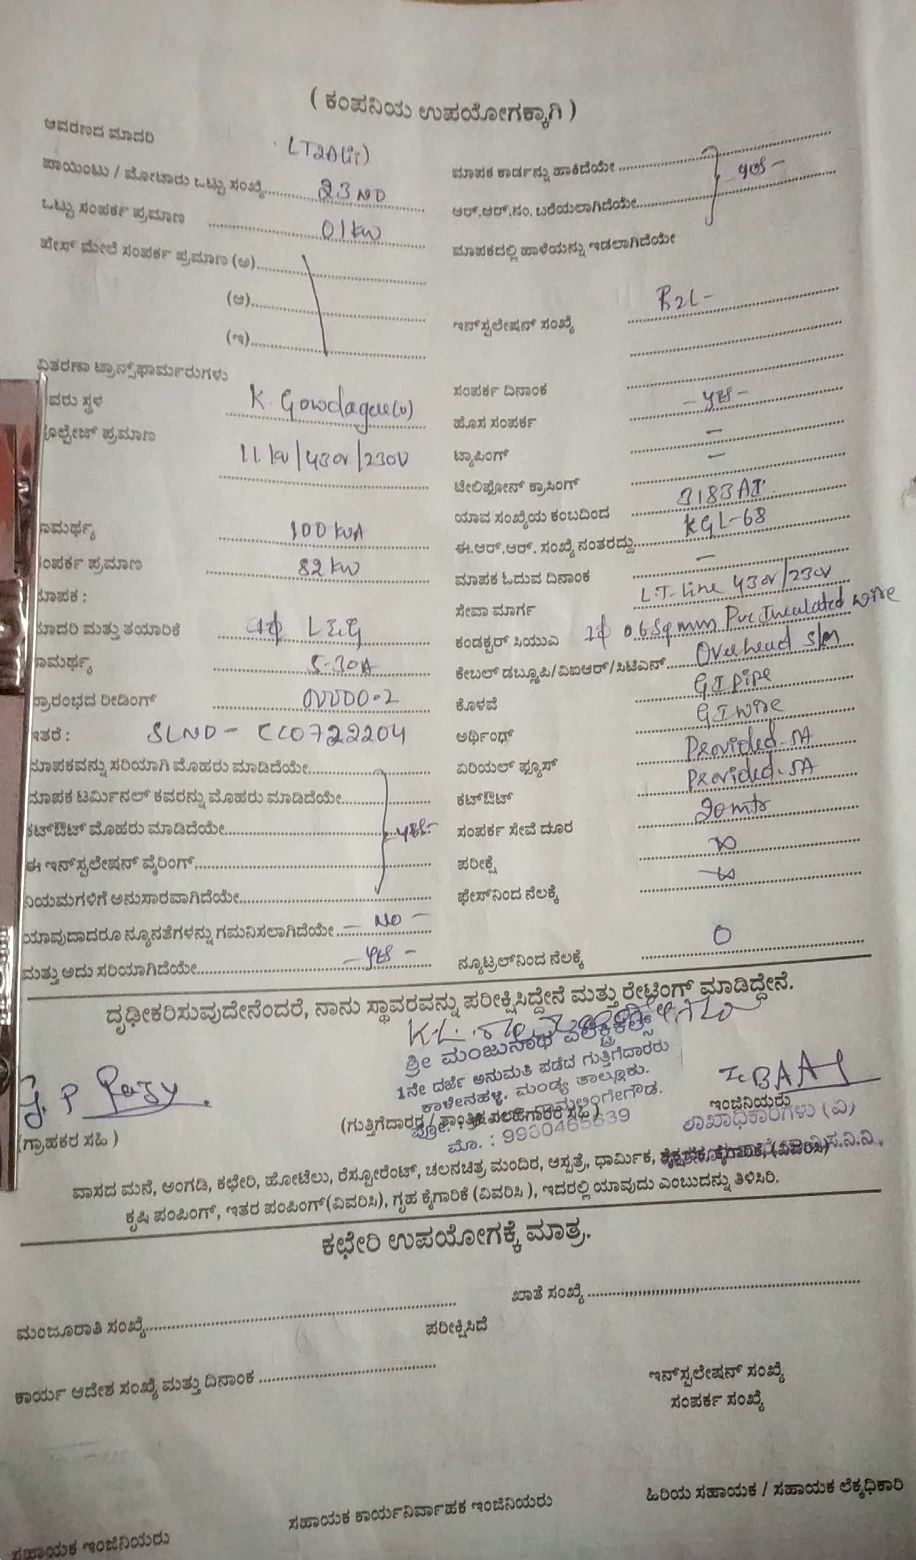 ( ಕಂಪನಿಯ ಉಪಯೋಗಕ್ಕಾಗಿ )
ಆವರಣದ ಮಾದರಿ LT2A(ii)
ಪಾಯಿಂಟು / ಮೋಟಾರು ಒಟ್ಟು ಸಂಖ್ಯೆ 03 NO
ಒಟ್ಟು ಸಂಪರ್ಕ ಪ್ರಮಾಣ 01 kw
ಫೇಸ್ ಮೇಲೆ ಸಂಪರ್ಕ ಪ್ರಮಾಣ (ಅ)
(ಆ)
(ಇ)
ವಿತರಣಾ ಟ್ರಾನ್ಸ್‌ಫಾರ್ಮರುಗಳು
ವರು ಸ್ಥಳ K. Gowdagere(v)
ೋಲ್ಟೇಜ್ ಪ್ರಮಾಣ 11 kv/430v/230V
ಾಮರ್ಥ್ಯ 100 kVA
ಂಪರ್ಕ ಪ್ರಮಾಣ 82 kw
ಮಾಪಕ :
ಮಾದರಿ ಮತ್ತು ತಯಾರಿಕೆ 1ϕ L&G
ಾಮರ್ಥ್ಯ 5-30A
ಪ್ರಾರಂಭದ ರೀಡಿಂಗ್ 00000.2
ಇತರೆ : SLNO - CC0722204
ಮಾಪಕವನ್ನು ಸರಿಯಾಗಿ ಮೊಹರು ಮಾಡಿದೆಯೇ
ಮಾಪಕ ಟರ್ಮಿನಲ್ ಕವರನ್ನು ಮೊಹರು ಮಾಡಿದೆಯೇ
ಕಟ್‌ಔಟ್ ಮೊಹರು ಮಾಡಿದೆಯೇ yes-
ಈ ಇನ್‌ಸ್ಟಲೇಷನ್ ವೈರಿಂಗ್
ನಿಯಮಗಳಿಗೆ ಅನುಸಾರವಾಗಿದೆಯೇ
ಯಾವುದಾದರೂ ನ್ಯೂನತೆಗಳನ್ನು ಗಮನಿಸಲಾಗಿದೆಯೇ - NO -
ಮತ್ತು ಅದು ಸರಿಯಾಗಿದೆಯೇ - yes -
ಮಾಪಕ ಕಾರ್ಡನ್ನು ಹಾಕಿದೆಯೇ
ಆರ್.ಆರ್.ನಂ. ಬರೆಯಲಾಗಿದೆಯೇ - yes -
ಮಾಪಕದಲ್ಲಿ ಹಾಳೆಯನ್ನು ಇಡಲಾಗಿದೆಯೇ
ಇನ್‌ಸ್ಟಲೇಷನ್ ಸಂಖ್ಯೆ
ಸಂಪರ್ಕ ದಿನಾಂಕ
ಹೊಸ ಸಂಪರ್ಕ - yes -
ಟ್ಯಾಪಿಂಗ್ -
ಟೇಲಿಫೋನ್ ಕ್ರಾಸಿಂಗ್ -
ಯಾವ ಸಂಖ್ಯೆಯ ಕಂಬದಿಂದ
ಈ.ಆರ್.ಆರ್. ಸಂಖ್ಯೆ ನಂತರದ್ದು KGL-68
ಮಾಪಕ ಓದುವ ದಿನಾಂಕ -
ಸೇವಾ ಮಾರ್ಗ L.T. line 430v/230v
ಕಂಡಕ್ಟರ್ ಸಿಯುಎ 06 Sq mm Pvc Insulated wire
ಕೇಬಲ್ ಡಬ್ಲೂಪಿ/ವಿಐಆರ್/ಸಿಟಿಎಸ್ Overhead s/m
ಕೊಳವೆ GI pipe
ಅರ್ಥಿಂಥ್ GI wire
ಏರಿಯಲ್ ಫ್ಯೂಸ್ Provided-5A
ಕಟ್‌ಔಟ್ Provided-5A
ಸಂಪರ್ಕ ಸೇವೆ ದೂರ 20 mtr
ಪರೀಕ್ಷೆ ∞
ಫೇಸ್‌ನಿಂದ ನೆಲಕ್ಕೆ ∞
ನ್ಯೂಟ್ರಲ್‌ನಿಂದ ನೆಲಕ್ಕೆ 0
ದೃಢೀಕರಿಸುವುದೇನೆಂದರೆ, ನಾನು ಸ್ಥಾವರವನ್ನು ಪರೀಕ್ಷಿಸಿದ್ದೇನೆ ಮತ್ತು ರೇಟಿಂಗ್ ಮಾಡಿದ್ದೇನೆ.
ಶ್ರೀ ಮಂಜುನಾಥ ಎಲೆಕ್ಟ್ರಿಕಲ್ಸ್
1ನೇ ದರ್ಜೆ ಅನುಮತಿ ಪಡೆದ ಗುತ್ತಿಗೆದಾರರು
ಕಾಳೇನಹಳ್ಳಿ, ಮಂಡ್ಯ ತಾಲ್ಲೂಕು.
ಮೊ. :
(ಗ್ರಾಹಕರ ಸಹಿ )
ಇಂಜಿನಿಯರು
ಶಾಖಾಧಿಕಾರಿಗಳು (ವಿ)
ವಾಸದ ಮನೆ, ಅಂಗಡಿ, ಕಛೇರಿ, ಹೋಟೆಲು, ರೆಸ್ಪೋರೆಂಟ್, ಚಲನಚಿತ್ರ ಮಂದಿರ, ಆಸ್ಪತ್ರೆ, ಧಾರ್ಮಿಕ,
ಕೃಷಿ ಪಂಪಿಂಗ್, ಇತರ ಪಂಪಿಂಗ್(ವಿವರಿಸಿ), ಗೃಹ ಕೈಗಾರಿಕೆ (ವಿವರಿಸಿ ), ಇದರಲ್ಲಿ ಯಾವುದು ಎಂಬುದನ್ನು ತಿಳಿಸಿರಿ.
ಕಛೇರಿ ಉಪಯೋಗಕ್ಕೆ ಮಾತ್ರ.
ಮಂಜೂರಾತಿ ಸಂಖ್ಯೆ ಖಾತೆ ಸಂಖ್ಯೆ
ಪರೀಕ್ಷಿಸಿದೆ
ಕಾರ್ಯ ಆದೇಶ ಸಂಖ್ಯೆ ಮತ್ತು ದಿನಾಂಕ
ಇನ್‌ಸ್ಟಲೇಷನ್ ಸಂಖ್ಯೆ
ಸಂಪರ್ಕ ಸಂಖ್ಯೆ
ಸಹಾಯಕ ಇಂಜಿನಿಯರು ಸಹಾಯಕ ಕಾರ್ಯನಿರ್ವಾಹಕ ಇಂಜಿನಿಯರು ಹಿರಿಯ ಸಹಾಯಕ / ಸಹಾಯಕ ಲೆಕ್ಕಧಿಕಾರಿ